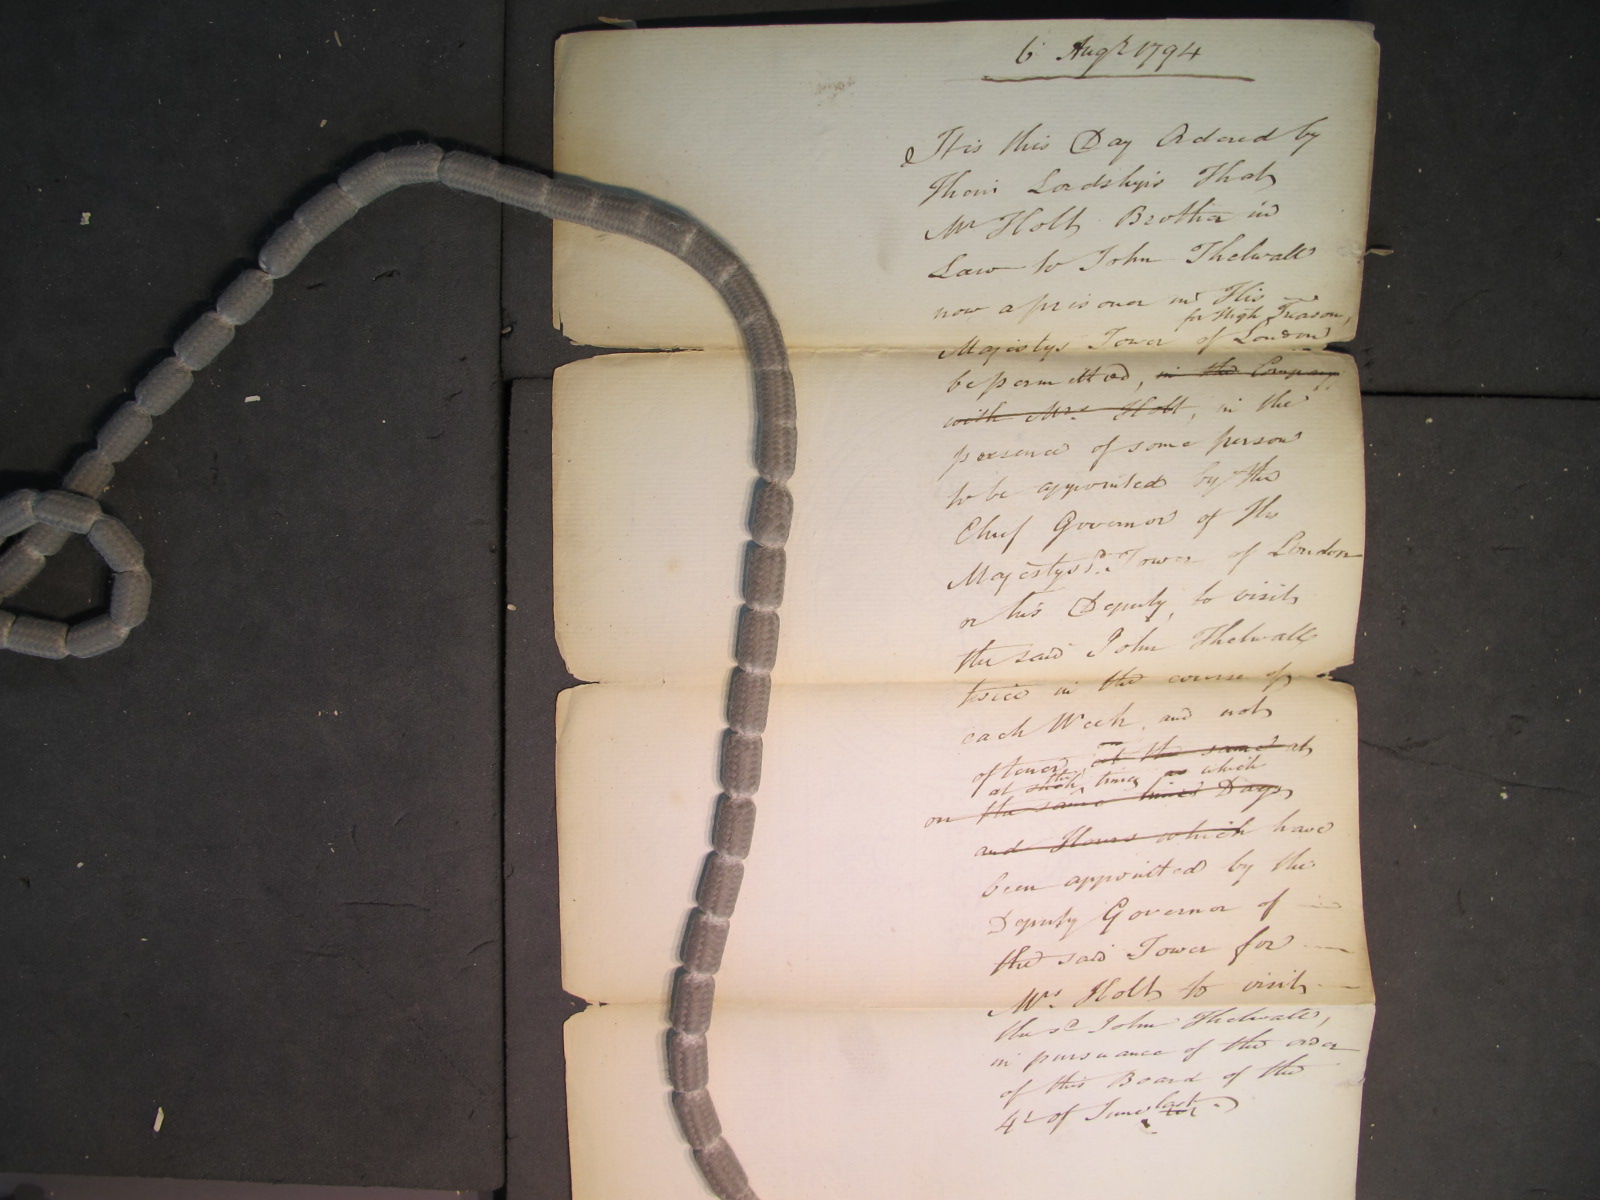 6 Augt 1794
It is this Day Ordered by
Their Lordships That
Mr Holt Brother in
Law to John Thelwall
now a prisoner in His
for High Treason,
Majestys Tower of London
be permitted, in the Company
with Mrs Holt, in the
presence of some person
to be appointed by the
Chief Governor of His
Majestys Tower of London
or his Deputy, to visit
the said John Thelwall
twice in the course of
each Week, and not
oftener, at the same at
at such times which
on the same times Days
and Hours which have
been appointed by the
Deputy Governor of
the said Tower for
Mrs Holt to visit
the sd John Thelwall,
in pursuance of the order
of this Board of the
4t of June last